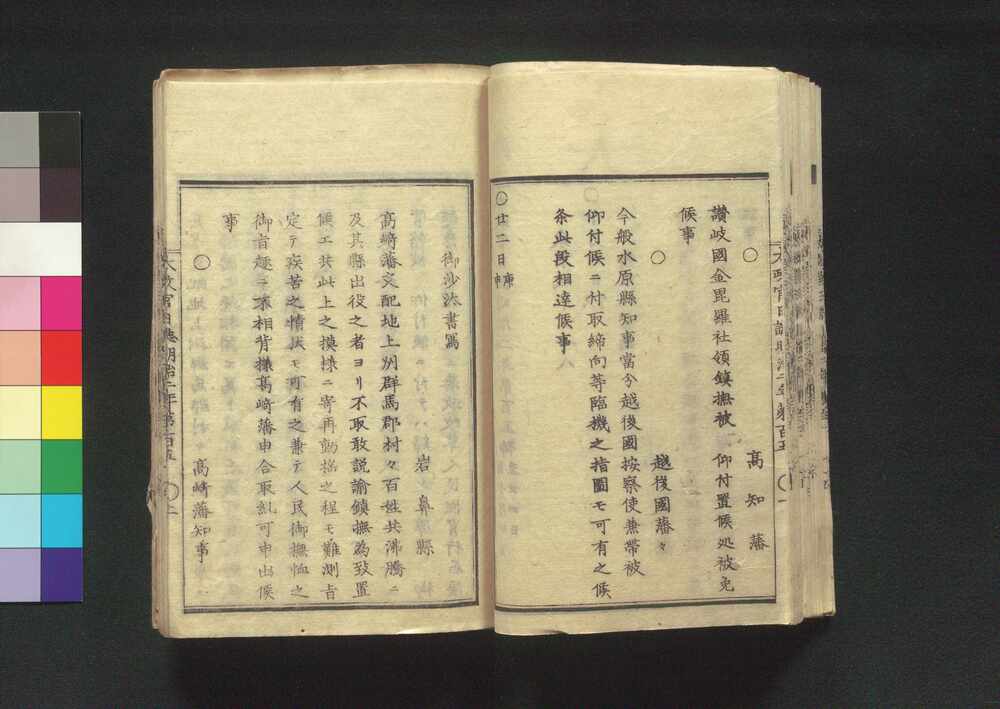 ○
高知藩
讃岐國金毘羅社領鎮撫被 仰付置候処被免
候事
○
越後國藩々
今般水原縣知事當分越後國按察使兼帯被
仰付候ニ付取締向等臨機之指圖モ可有之候
条此段相達候事
○廿二日庚申
御沙汰書寫
岩鼻縣
高﨑藩支配地上州群馬郡村々百姓共沸騰ニ
及其縣出役之者ヨリ不取敢説諭鎮撫為致置
候エ共此上之摸様ニ寄再動揺之程モ難測旨
定テ疾苦之情状モ可有之兼テ人民御撫恤之
御旨趣ニ不相背様高﨑藩申合取糺可申出候
事
○
高﨑藩知事
太政官日誌明治二年第百五
○二